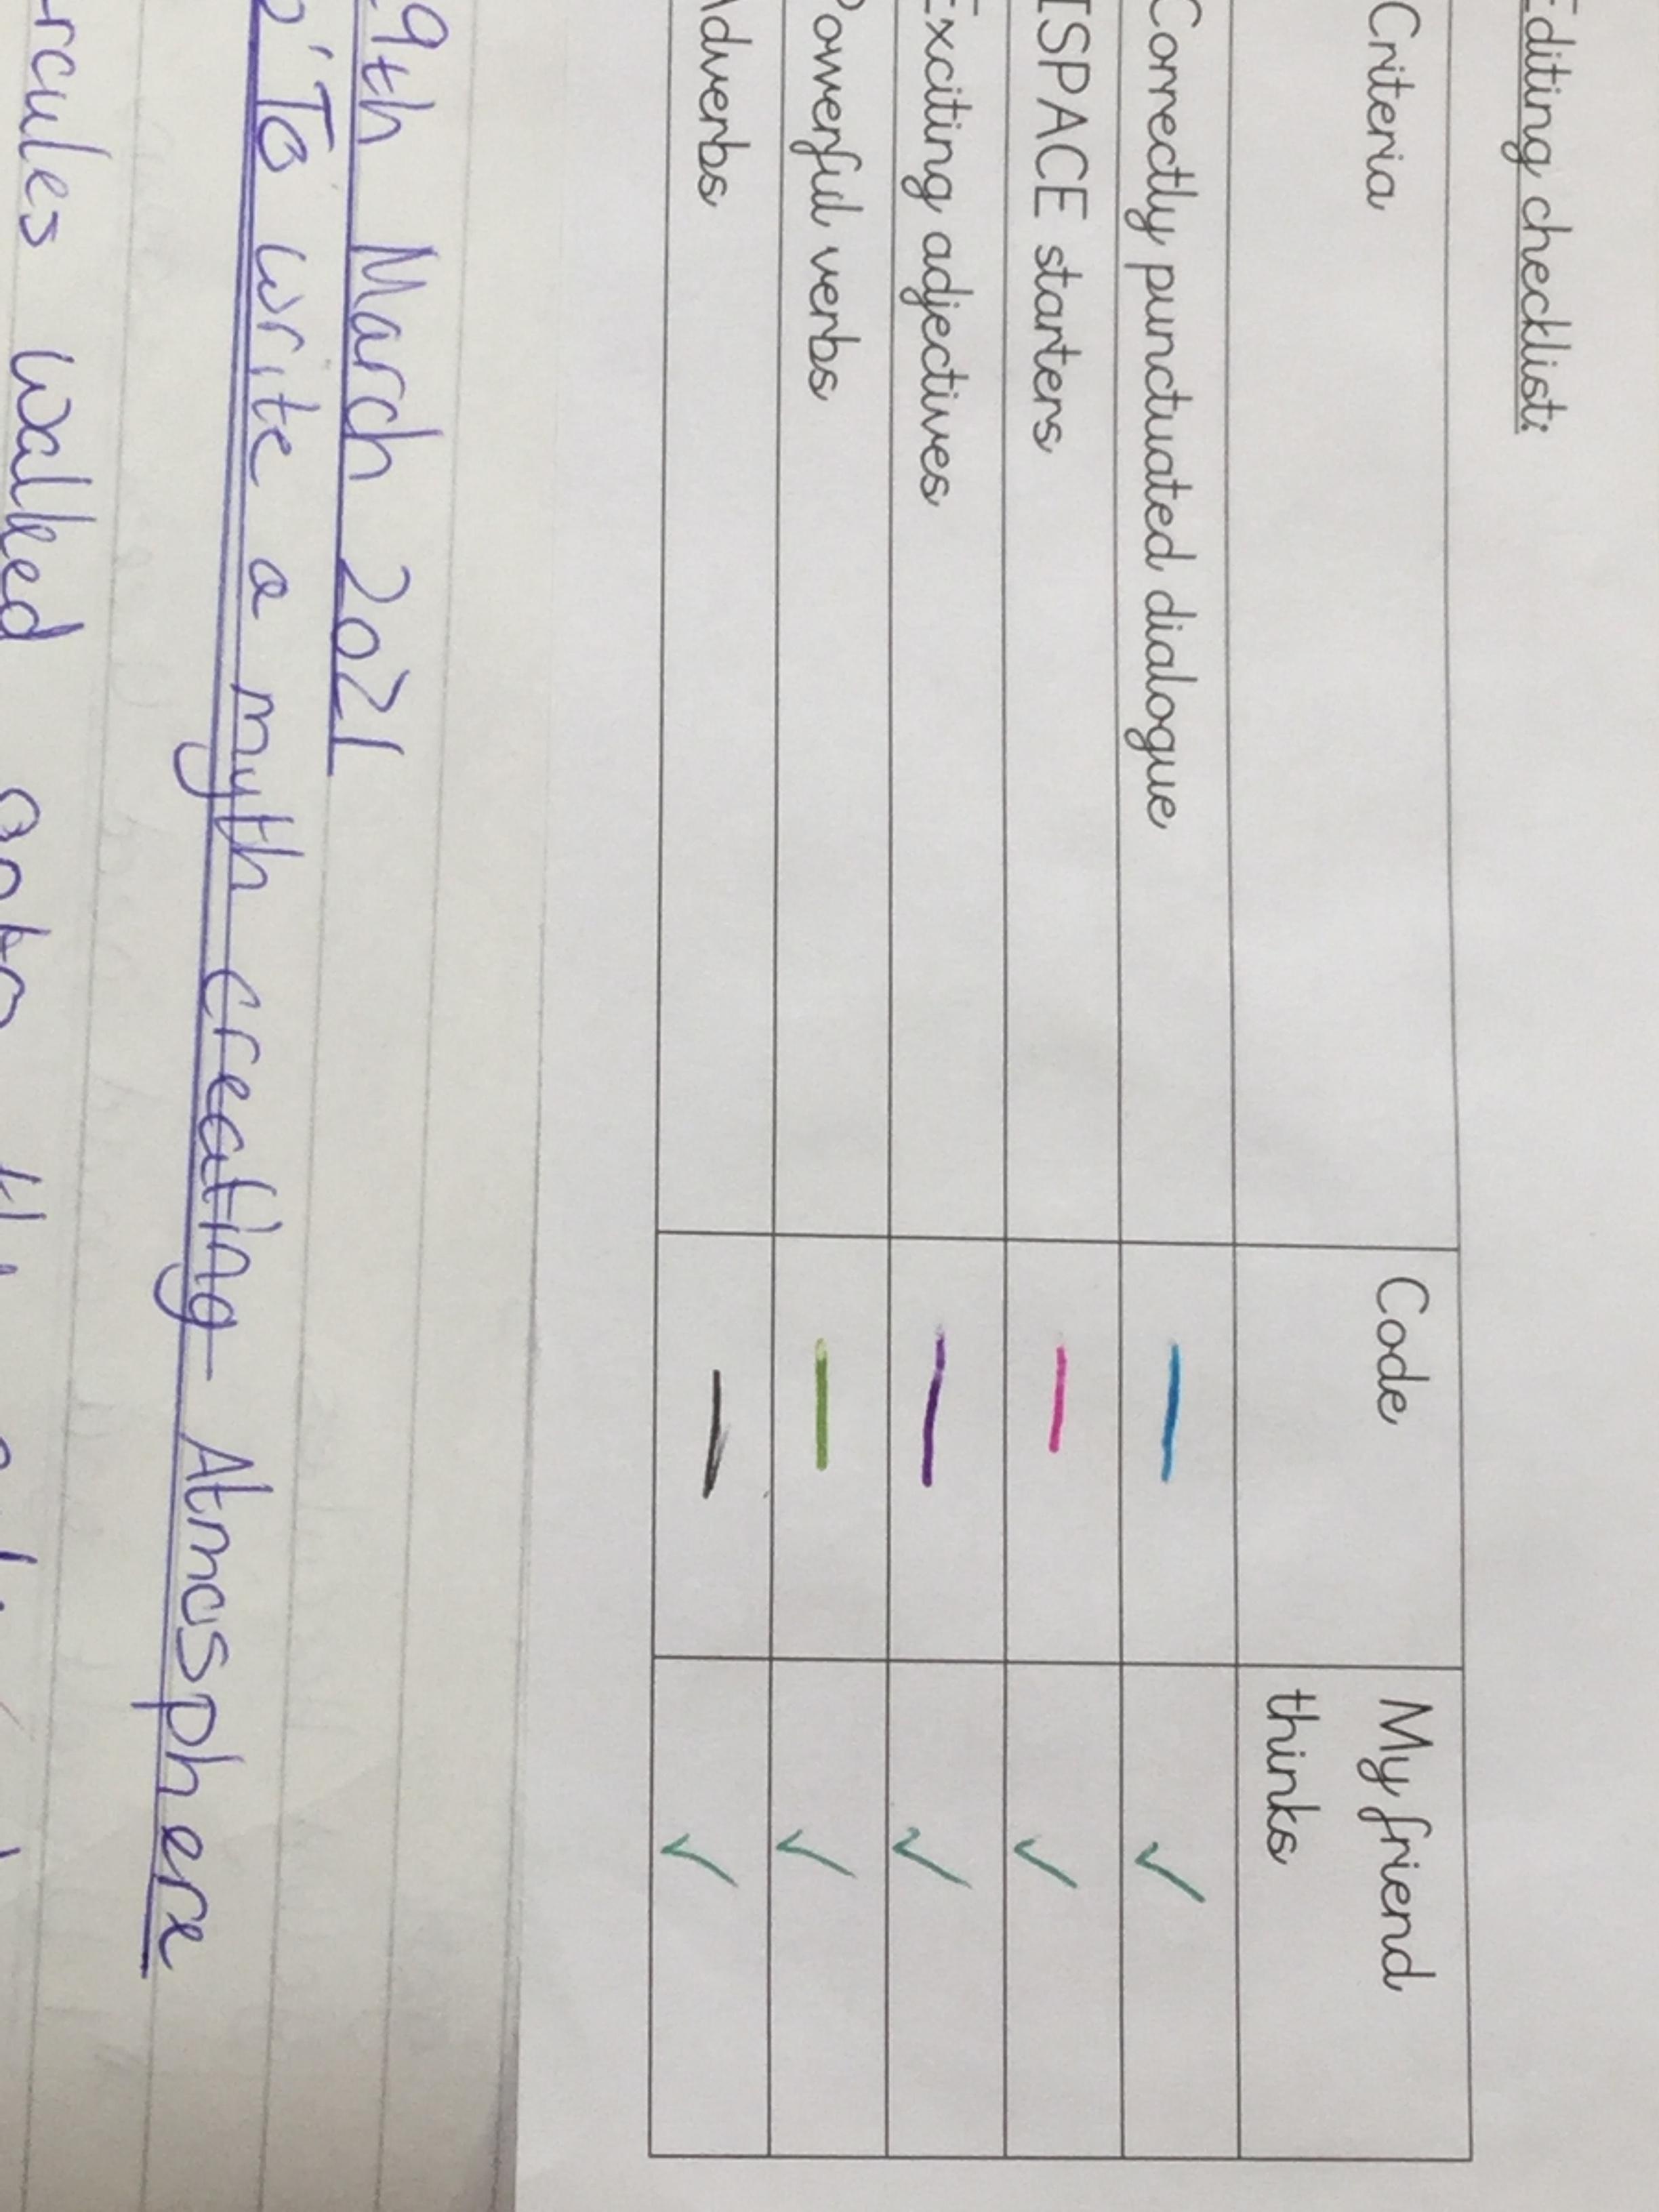 Editing checklist:
Criteria Code My friend
thinks
Correctly punctuated dialogue ✓
ISPACE starters ✓
Exciting adjectives ✓
Powerful verbs ✓
Adverbs ✓
9th March 2021
To write a myth creating Atmosphere
rcules walked